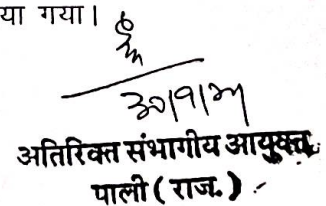 या गया।
30/9/24
अतिरिक्त संभागीय आयुक्त
पाली ( राज. )